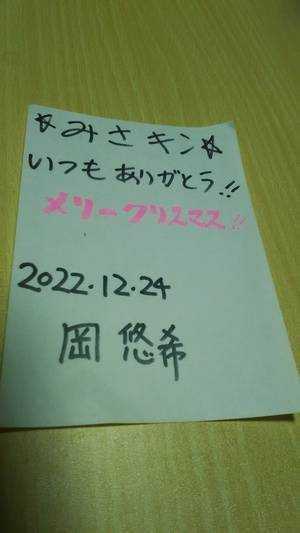 ☆みさキン☆
いつもありがとう!!
メリークリスマス!!
2022.12.24
岡 悠希